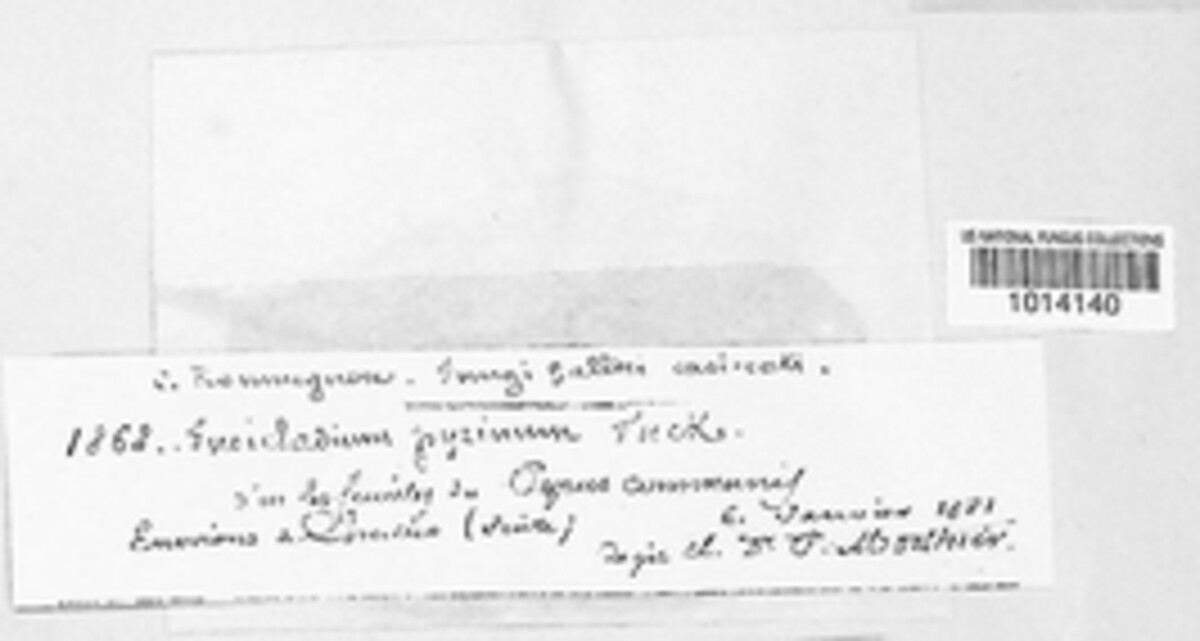 C. Roumeguère. Fungi Gallici exsiccati.
1862. Fusicladium pyrinum Fuck.
Sur les feuilles du Pyrus communis
Environs de (Suisse)
Legit cl. Dr. P. Morthier.
US NATIONAL FUNGUS COLLECTIONS
1014140